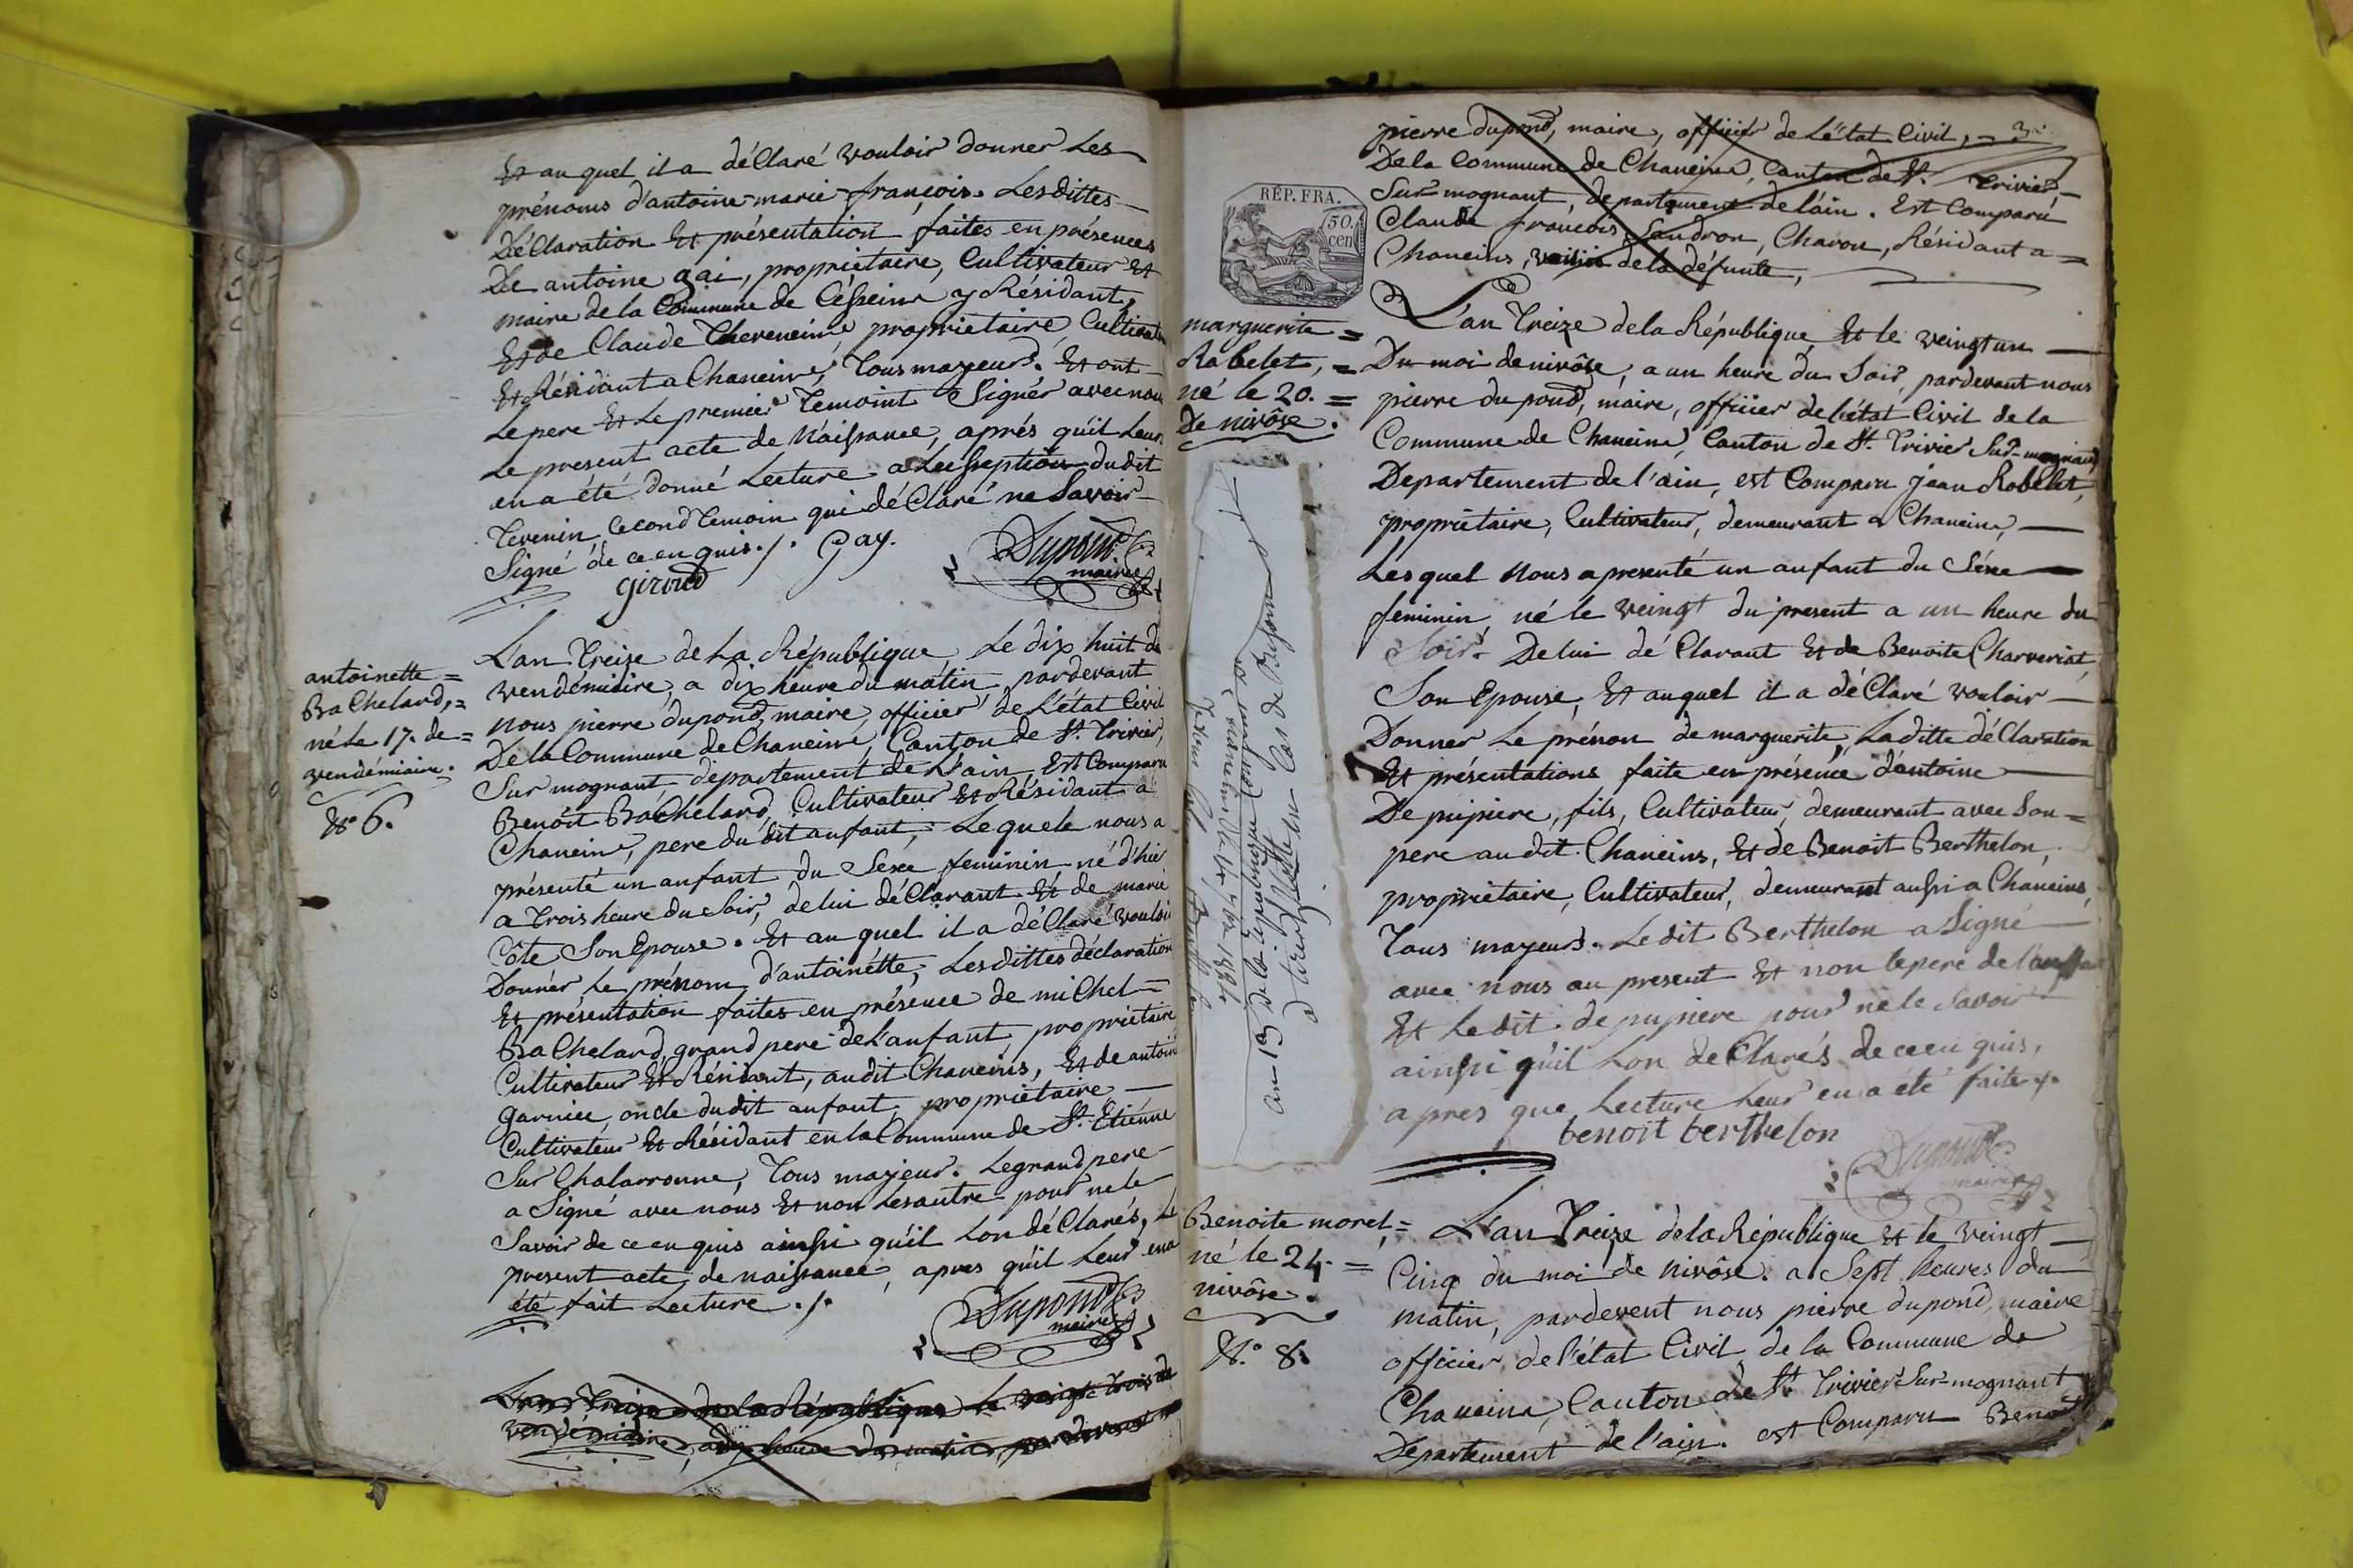 Et auquel il a déClaré vouloir donner Les
prénoms d'antoine-marie-françois. Lesdittes
DéClaration Et présentation faites en présences
De antoine gai, propriétaire, Cultivateur Et
maire de la Commune de Césseins y Résidant,
Et de Claude Theveneins, propriétaire, Cultivat
Et Résidant a Chaneins, Tous mayeurs. Et ont
Le pere Et Le premier Temoint Signér avec nous
Le present acte de Naissance, aprés qu'il Leurs
en a été donné Lecture a Lesseption dudit
Tevenin, Second Temoin qui déClaré ne Savoir
Signé de ce en quis ./. Gay.
giroud
Dupond
maire
antoinette =
BaChelard, =
né Le 17. de =
vendémiaire.
N° 6.
L'an Treize de La République, Le dix huit de
vendémiaire, a dix heure du matin, pardevant
nous pierre dupond, maire, officier de L'état Civil
De la Commune de Chaneins, Canton de St. Trivier,
Sur mognant, département de L'ain, Est Comparu
Benoit BaChelard, Cultivateur Et Résidant a
Chaneins, pere du dit anfant, Lequele nous a
présenté un anfant du Sexe feminin né d'hier
a Trois heure du Soir, de lui déClarant Et de marie
Côte Son Epouse. Et au quel il a déClaré vouloir
Donner Le prénom d'antoinétte, Lesdittes déclaration
Et présentation faites en présence de miChel =
BaChelard, grand pere de L'anfant, propriétaire
Cultivateur Et Résidant, au dit Chaneins, Et de antoine
garnier, oncle dudit anfant, propriétaire
Cultivateur Et Résidant en la Commune de St. Etiénne
Sur Chalaronne, Tous mayeur. Le grand pere
a Signé avec nous Et non Les autre pour ne le
Savoir de ce en quis ainssi qu'il Lon déClarés, Le
present acte de naissance, apres qu'il Leur en a
été fait Lecture ./.
Dupond
maire
L'an Treize de la République Le vaingt Trois de
vendémiaire, a dix heure du matin, pardevant
pierre dupond, maire, officier de L'état Civil, =
De la Commune de Chaneins, Canton de St. Trivier
Sur mognant, département de l'ain. Est Comparu
Claude françois Sandron, Charon, Résidant a =
Chaneins, voisin de la défunte,
RÉP. FRA.
50.
cen
marguerite =
Rabelet, =
né le 20. =
De nivôse.
L'an Treize de la République Et le veingt un
Du moi de nivôse, a un heure du Soir, pardevant nous
pierre dupond, maire, officier de l'état Civil de la
Commune de Chaneins, Canton de St. Trivier Sur-mognant
Departement de l'ain, est Comparu jean Robelet,
propriétaire, Cultivateur, demeurant a Chaneins,
Lesquel Nous a presenté un anfant du Séxe
feminin, né le veingt du present a un heure du
Soir. De lui déClarant Et de Benoite Charveriat,
Son Epouse, Et auquel il a déClaré vouloir
Donner Le prénon de marguerite, Laditte déClaration
Et présentations faite en présence d'antoine
Depupiere, fils, Cultivateur, demeurant avec Son =
pere au dit Chaneins, Et de Benoit Berthelon,
propriétaire, Cultivateur, demeurant aussi a Chaneins,
Tous mayeurs. Le dit Berthelon a Signé
avec nous au present Et non le pere de l'anffant
Et Ledit depupiere pour ne le Savoir
ainssi qu'il Lon déClarés de ce en quis,
apres que Lecture Leur en a été faite ./.
benoit berthelon
Dupond
maire
an 13 de la République
Benoite morel, =
né le 24. =
nivôse.
N.° 8.
L'an Treize de la République Et le veingt
Cinq du moi de nivôse. a Sept heures du
matin, pardevent nous pierre dupond, maire
officier de l'état Civil de la Commune de
Chaneins, Canton de St. Trivier Sur-mognant
Departement de l'ain. est Comparu Benoit